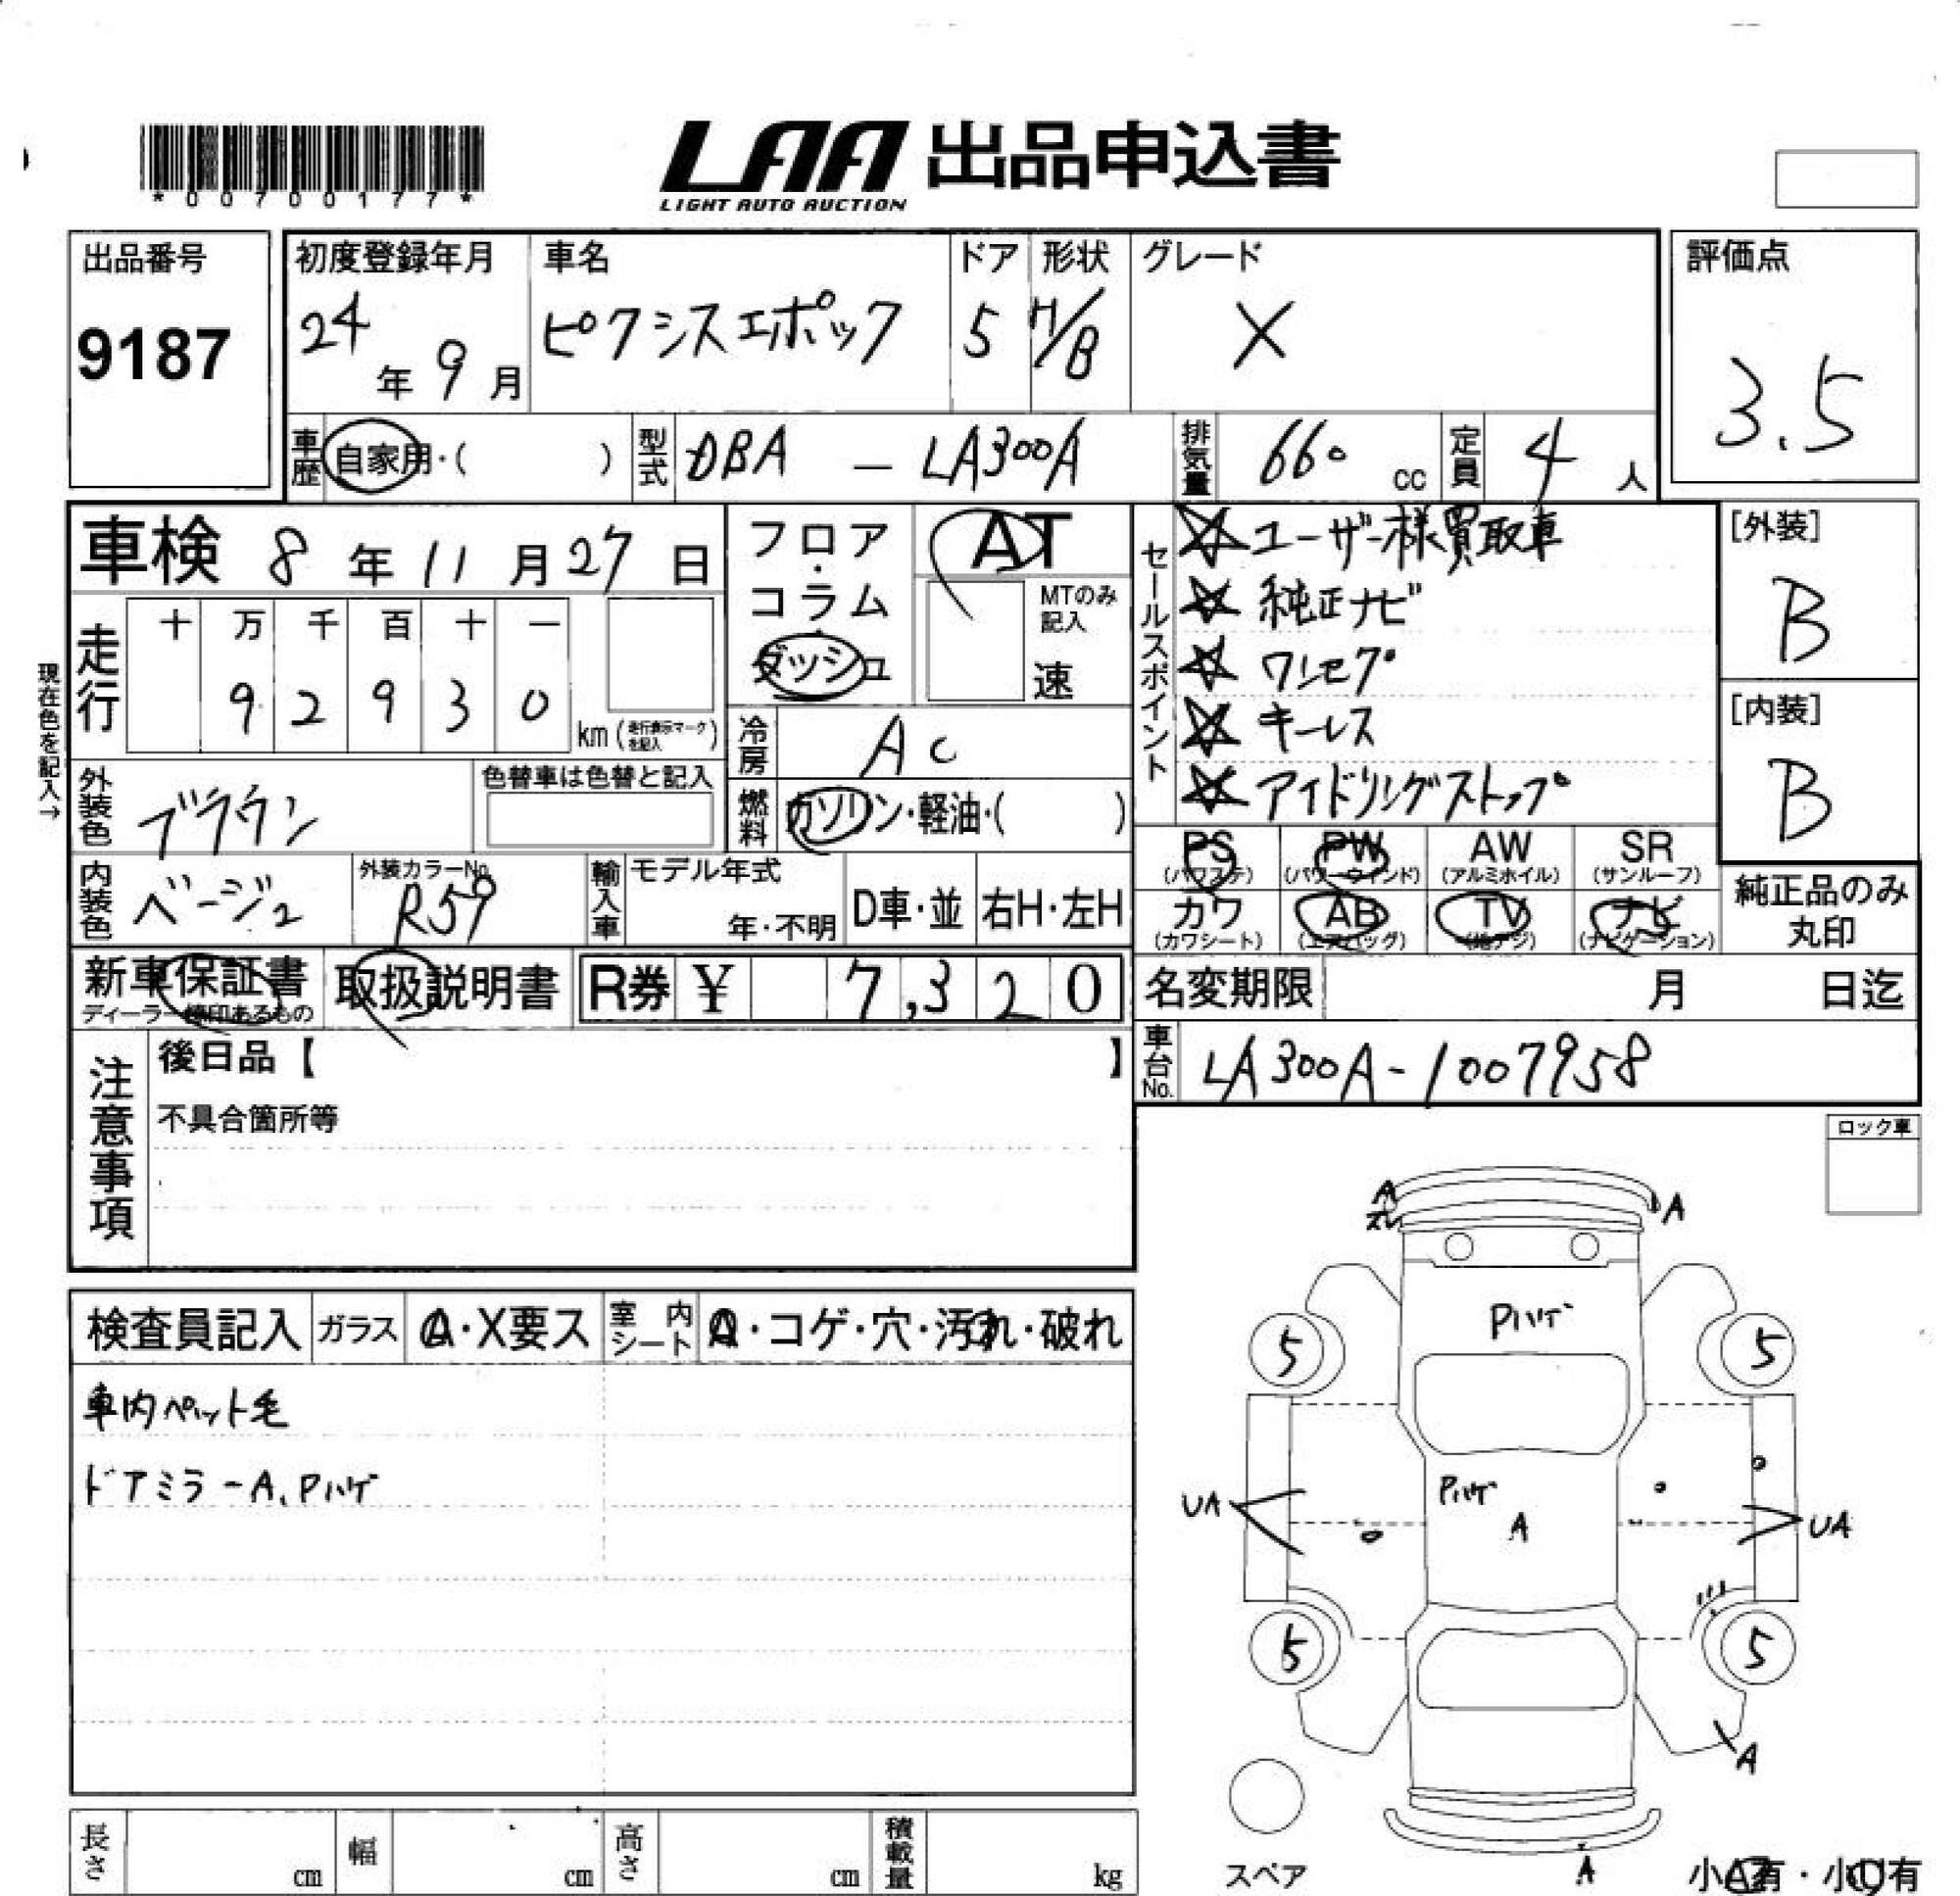 *00700177*
LAA 出品申込書
LIGHT AUTO AUCTION
出品番号
9187
初度登録年月
24年9月
車名
ピクシスエポック
ドア
5
形状
H/B
グレード
X
評価点
3.5
車歴
自家用・( )
型式
DBA － LA300A
排気量
660 cc
定員
4人
車検 8年11月27日
フロア・コラム・ダッシュ
AT
MTのみ記入
速
セールスポイント
☆ユーザー様買取車
☆純正ナビ
☆ワンセグ
☆キーレス
☆アイドリングストップ
[外装]
B
[内装]
B
現在色を記入→
走行
十 万 千 百 十 一
9 2 9 3 0
km(走行表示マークを記入)
冷房
AC
外装色
ブラウン
色替車は色替と記入
燃料
ガソリン・軽油・( )
内装色
ベージュ
外装カラーNo.
R59
輸入車
モデル年式
年・不明
D車・並
右H・左H
PS (パワステ)
PW (パワーウインド)
AW (アルミホイル)
SR (サンルーフ)
カワ (カワシート)
AB (エアバッグ)
TV (地デジ)
ナビ (ナビゲーション)
純正品のみ丸印
新車保証書
ディーラー捺印あるもの
取扱説明書
R券 ¥ 7,320
名変期限 月 日迄
車台No.
LA300A-1007958
注意事項
後日品【 】
不具合箇所等
ロック車
検査員記入
ガラス
A・X要ス
室内シート
・コゲ・穴・汚れ・破れ
車内ペット毛
ドアミラーA、Pハゲ
A
スレ
A
Pハゲ
5
5
Pハゲ
A
UA
UA
5
5
A
A
スペア
小A有・小U有
長さ cm
幅 cm
高さ cm
積載量 kg